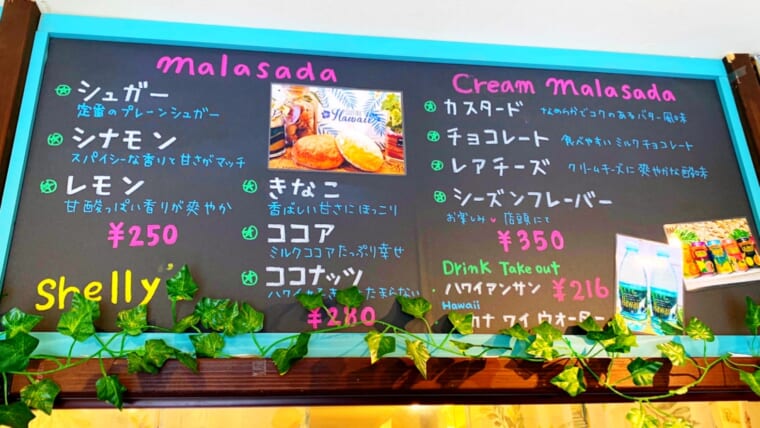 malasada
シュガー
定番のプレーンシュガー
シナモン
スパイシーな香りと甘さがマッチ
レモン
甘酸っぱい香りが爽やか
¥250
Shelly's
Hawaii
きなこ
香ばしい甘さにほっこり
ココア
ミルクココアたっぷり幸せ
ココナッツ
ハワイ
たまらない
¥280
Cream malasada
カスタード なめらかでコクのあるバター風味
チョコレート 食べやすいミルクチョコレート
レアチーズ クリームチーズに爽やかな酸味
シーズンフレーバー
お楽しみ♥店頭にて
¥350
Drink Take out
ハワイアンサン ¥216
Hawaii
カナ ワイ ウォーター